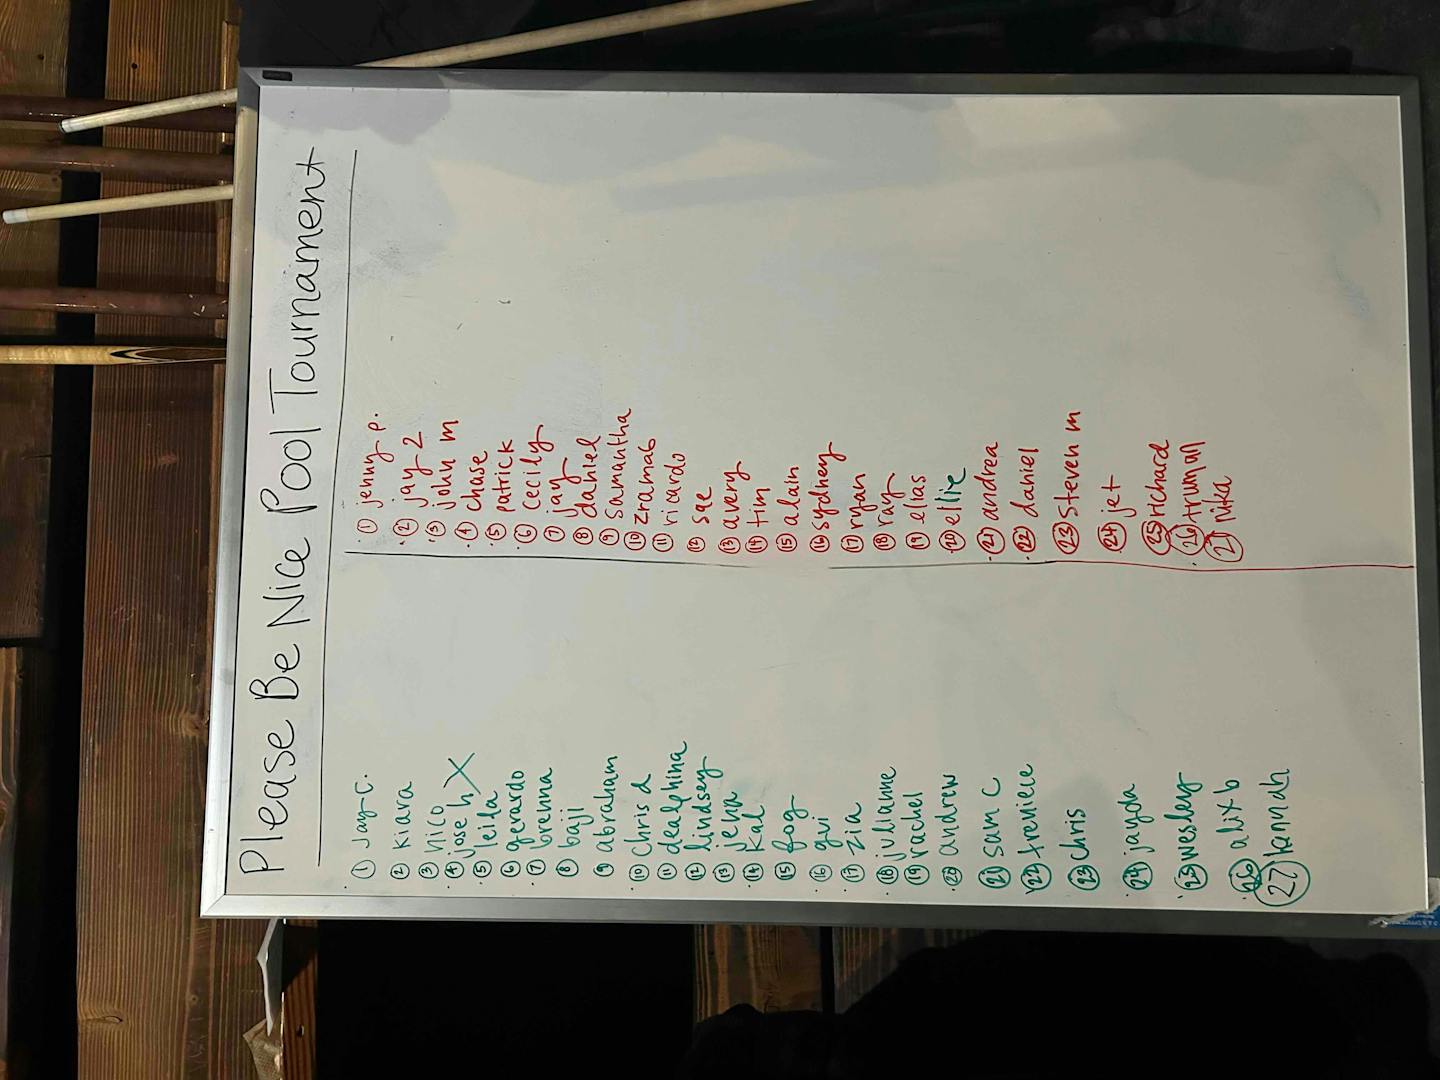 Please Be Nice Pool Tournament
① Jay C.
② kiara
③ nico
④ joseh X
⑤ leila
⑥ gerardo
⑦ brenna
⑧ baji
⑨ abraham
⑩ chris d
⑪ dealphina
⑫ lindsey
⑬ jena
⑭ kal
⑮ fog
⑯ gui
⑰ zia
⑱ julianne
⑲ rachel
⑳ andrew
㉑ sam c
㉒ treniece
㉓ chris
㉔ jayda
㉕ wesley
㉖ alix b
㉗ hannah
① jenny p.
② jay 2
③ john m
④ chase
⑤ patrick
⑥ cecily
⑦ jay
⑧ daniel
⑨ samantha
⑩ zramab
⑪ ricardo
⑫ sae
⑬ avery
⑭ tim
⑮ alain
⑯ sydney
⑰ ryan
⑱ ray
⑲ elias
⑳ ellie
㉑ andrea
㉒ daniel
㉓ steven m
㉔ jet
㉕ richard
㉖ truman
㉗ nika